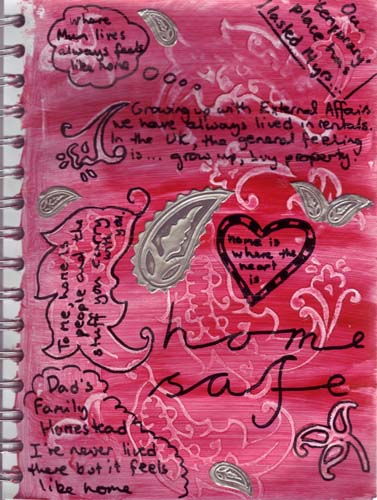 where
Mum lives
always feels
like home
Our
temporary
place has
lasted 14yrs!
Growing up with External Affairs
we have always lived in rentals.
In the UK, the general feeling
is... grow up, buy property!
To me, home is
people and the
stuff you carry
with you
Home is
where the
heart
is
home
safe
Dad's
Family
Homestead
I've never lived
there but it feels
like home